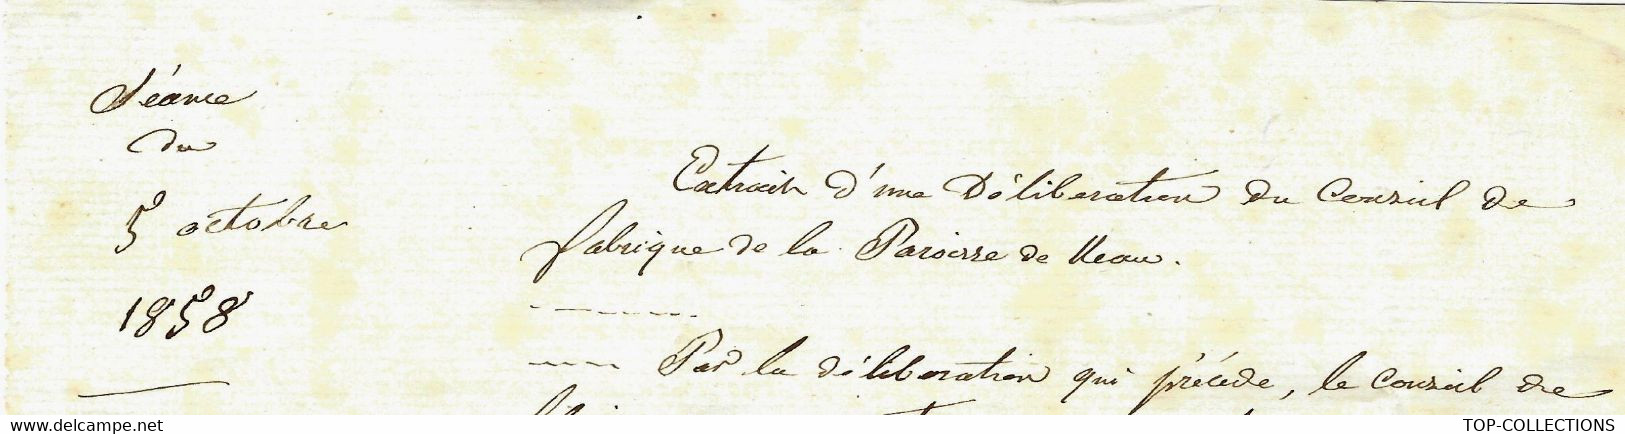 Séance
du
5 octobre
1858
Extrait d'une Délibération du Conseil de
fabrique de la Paroisse de Neau.
Par la délibération qui précède, le Conseil de
www.delcampe.net
TOP-COLLECTIONS